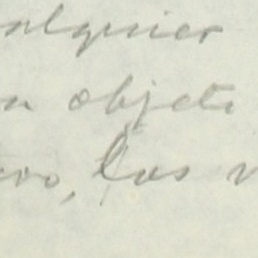 alquier
n objeto
vo, las